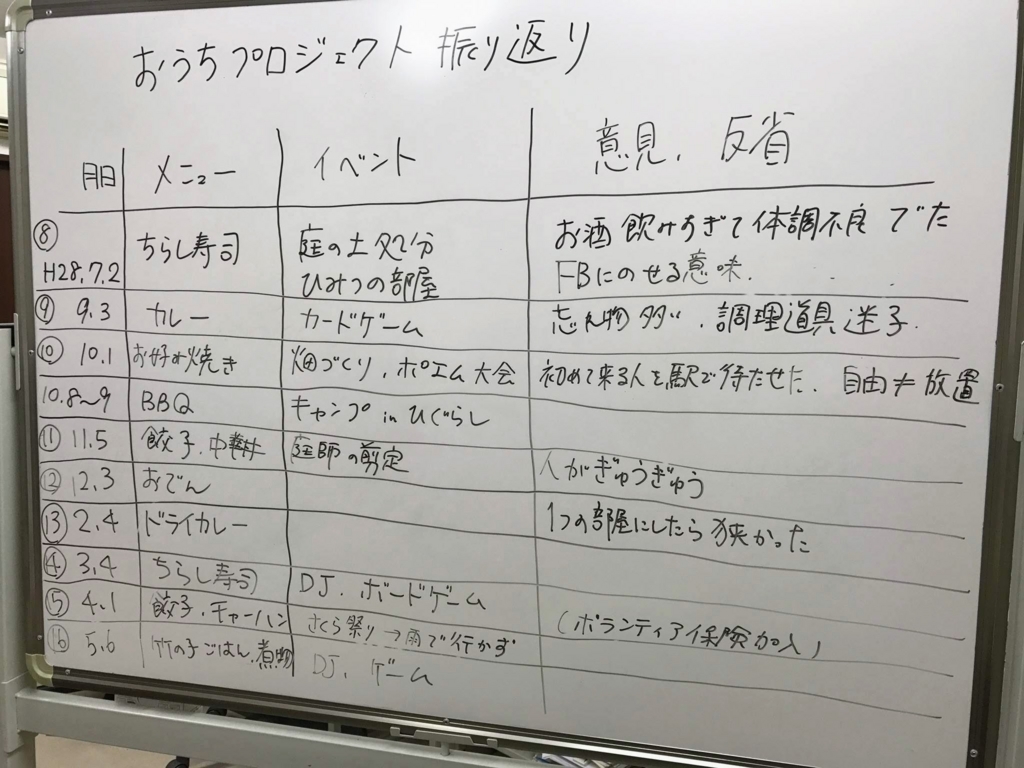 おうちプロジェクト 振り返り
月日 メニュー イベント 意見、反省
⑧ H28.7.2 ちらし寿司 庭の土処分 お酒飲みすぎて体調不良でた
ひみつの部屋 FBにのせる意味.
⑨ 9.3 カレー カードゲーム 忘れ物多い、調理道具迷子.
⑩ 10.1 お好み焼き 畑づくり、ポエム大会 初めて来る人を駅で待たせた、自由≠放置
10.8〜9 BBQ キャンプ in ひぐらし
⑪ 11.5 餃子、中華丼 庭師の剪定 人がぎゅうぎゅう
⑫ 12.3 おでん
⑬ 2.4 ドライカレー 1つの部屋にしたら狭かった
⑭ 3.4 ちらし寿司 DJ、ボードゲーム
⑮ 4.1 餃子、チャーハン さくら祭り→雨で行かず (ボランティア保険加入)
⑯ 5.6 竹の子ごはん、煮物 DJ、ゲーム